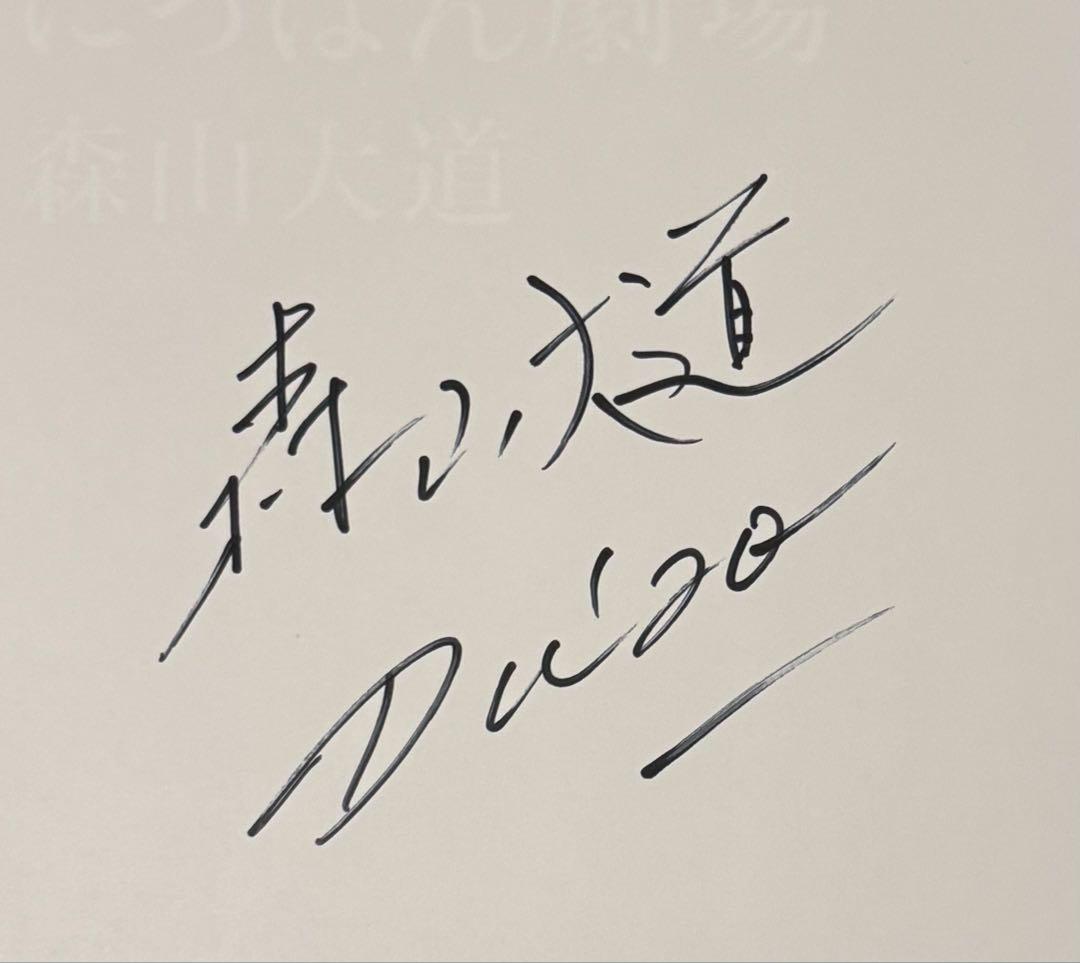 にっぽん劇場
森山大道
森山大道
Daido